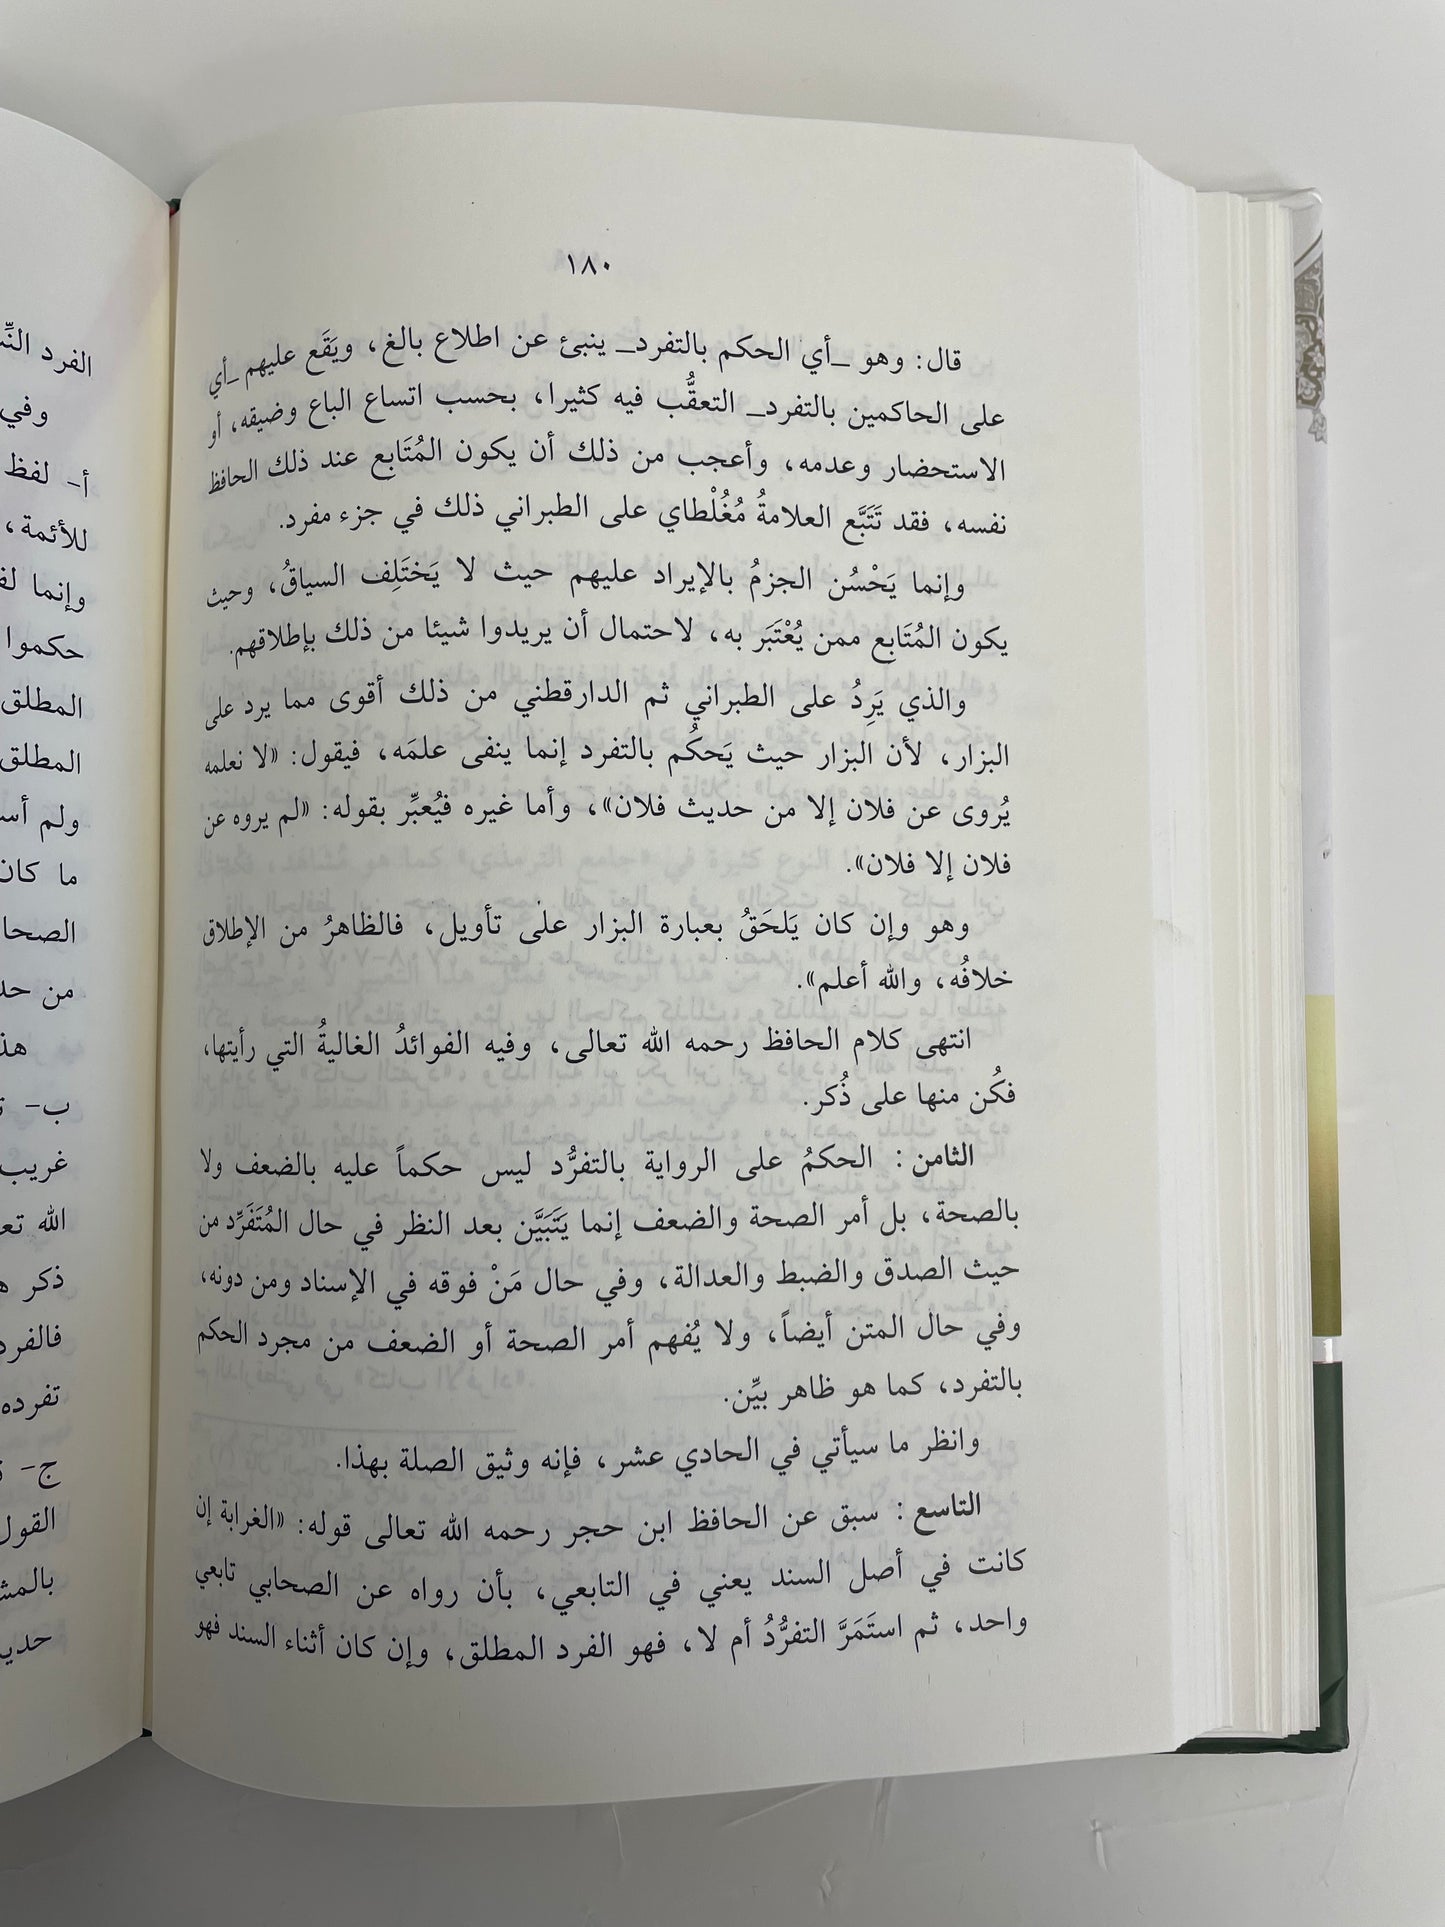 ١٨٠
قال: وهو _أي الحكم بالتفرد_ ينبئ عن اطلاع بالغ، ويَقَع عليهم _أي
على الحاكمين بالتفرد_ التعقُّب فيه كثيرا، بحسب اتساع الباع وضيقه، أو
الاستحضار وعدمه، وأعجب من ذلك أن يكون المُتَابع عند ذلك الحافظ
نفسه، فقد تَتَبَّع العلامةُ مُغُلْطاي على الطبراني ذلك في جزء مفرد.
وإنما يَحْسُن الجزمُ بالإيراد عليهم حيث لا يَختَلِف السياقُ، وحيث
يكون المُتَابع ممن يُعْتَبَر به، لاحتمال أن يريدوا شيئا من ذلك بإطلاقهم.
والذي يَرِدُ على الطبراني ثم الدارقطني من ذلك أقوى مما يرد على
البزار، لأن البزار حيث يَحكُم بالتفرد إنما ينفى علمَه، فيقول: «لا نعلمه
يُروى عن فلان إلا من حديث فلان»، وأما غيره فيُعبِّر بقوله: «لم يروه عن
فلان إلا فلان».
وهو وإن كان يَلحَقُ بعبارة البزار على تأويل، فالظاهرُ من الإطلاق
خلافُه، والله أعلم».
انتهى كلام الحافظ رحمه الله تعالى، وفيه الفوائدُ الغاليةُ التي رأيتها،
فكُن منها على ذُكر.
الثامن: الحكمُ على الرواية بالتفرُّد ليس حكماً عليه بالضعف ولا
بالصحة، بل أمر الصحة والضعف إنما يَتَبَيَّن بعد النظر في حال المُتَفَرِّد من
حيث الصدق والضبط والعدالة، وفي حال مَنْ فوقه في الإسناد ومن دونه،
وفي حال المتن أيضاً، ولا يُفهم أمر الصحة أو الضعف من مجرد الحكم
بالتفرد، كما هو ظاهر بيِّن.
وانظر ما سيأتي في الحادي عشر، فإنه وثيق الصلة بهذا.
التاسع: سبق عن الحافظ ابن حجر رحمه الله تعالى قوله: «الغرابة إن
كانت في أصل السند يعني في التابعي، بأن رواه عن الصحابي تابعي
واحد، ثم استَمَرَّ التفرُّدُ أم لا، فهو الفرد المطلق، وإن كان أثناء السند فهو
الفرد
وفي
أ- لفظ
للأئمة،
وإنما
حكموا
المطلق
المطلق
ولم
ما كان
من
ب-
غريب
الله
ذكر
تفرده
ج-
القول